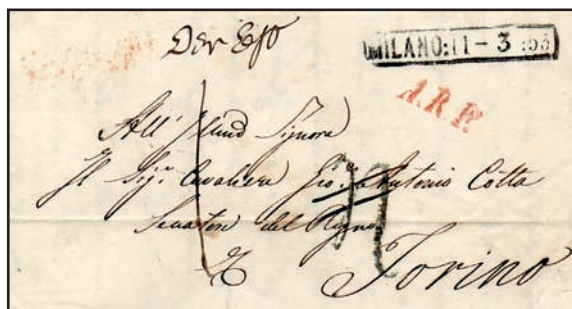 MILANO: 11 - 3 :53
A.R.P.
All' Illmo Signore
Il Sigr. Cavaliere Gio: Antonio Cotta
Senatore del Regno
Torino